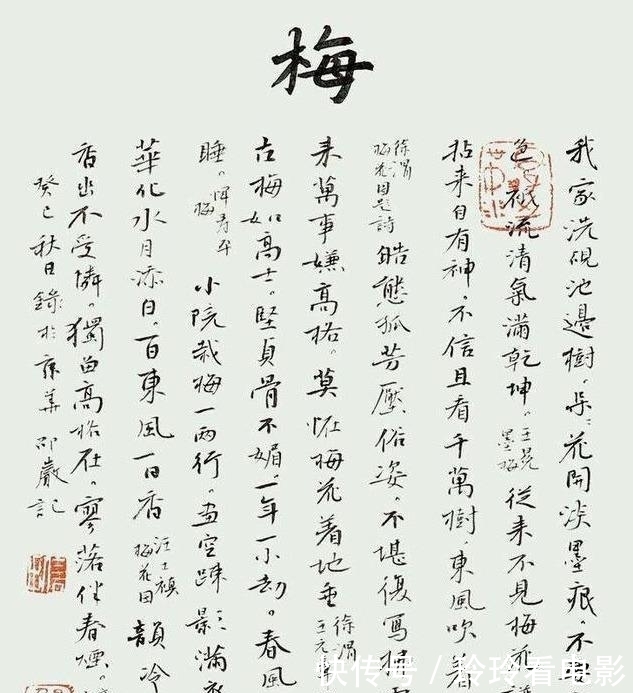 梅
我家洗硯池邊樹。朵〻花開淡墨痕。不
色。祇流清氣滿乾坤。王冕墨梅 從来不見梅花
拈来自有神。不信且看千萬樹。東風吹着
徐渭梅花圖題詩 皓態孤芳壓俗姿。不堪復寫
来萬事嫌高格。莫怪梅花着地垂 徐渭王元
古梅如高士。堅貞骨不媚。一年一小劫。春風
睡。惲壽平梅 小院栽梅一兩行。畫空疎〻影滿衣
華化水月添白。一日東風一日香 汪士慎梅花图 韻冷
香出不受憐。獨留高格在。寥落伴春煙。
癸巳秋日錄於 華 邵嚴記
快传号/玲玲看电影